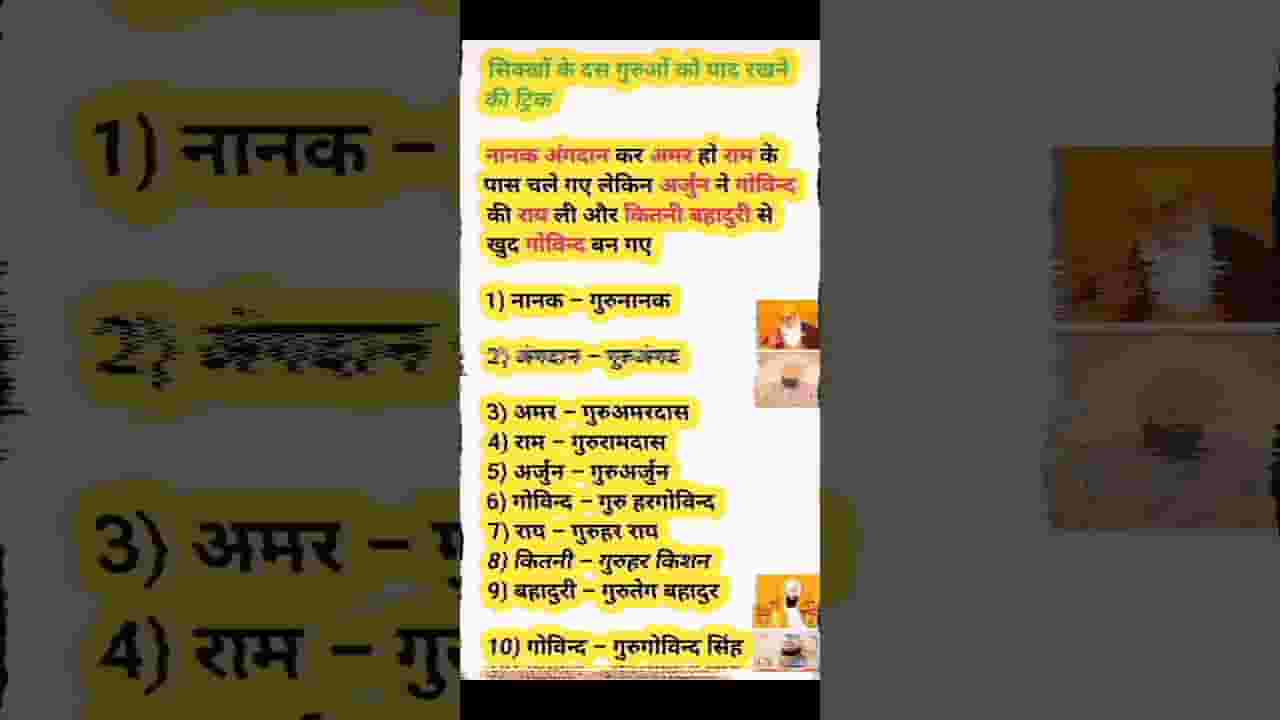 सिक्खों के दस गुरुओं को याद रखने
की ट्रिक
नानक अंगदान कर अमर हो राम के
पास चले गए लेकिन अर्जुन ने गोविन्द
की राय ली और कितनी बहादुरी से
खुद गोविन्द बन गए
1) नानक – गुरुनानक
2) अंगदान – गुरुअंगद
3) अमर – गुरुअमरदास
4) राम – गुरुरामदास
5) अर्जुन – गुरुअर्जुन
6) गोविन्द – गुरु हरगोविन्द
7) राय – गुरुहर राय
8) कितनी – गुरुहर किशन
9) बहादुरी – गुरुतेग बहादुर
10) गोविन्द – गुरुगोविन्द सिंह
1) नानक –
2) अंगदान
3) अमर –
4) राम – गु